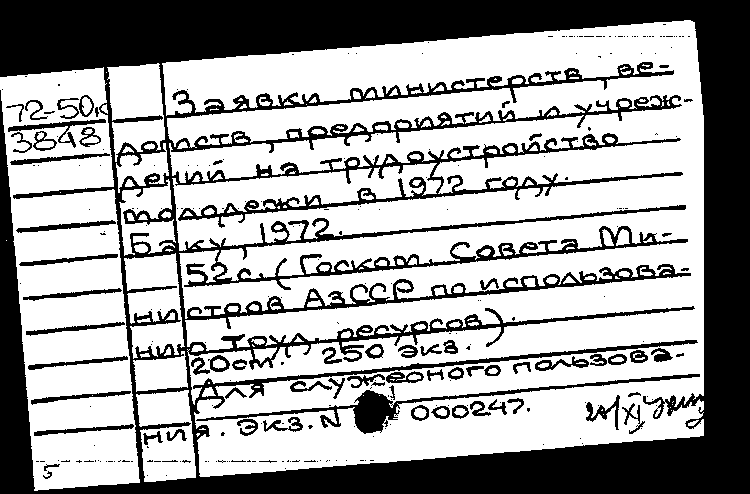 72-50к
3848
Заявки министерств, ве-
домств, предприятий и учреж-
дений на трудоустройство
молодежи в 1972 году.
Баку, 1972.
52с. (Госком. Совета Ми-
нистров АзССР по использова-
нию труд. ресурсов).
20см. 250 экз.
Для служебного пользова-
ния. Экз. N 000247.
5